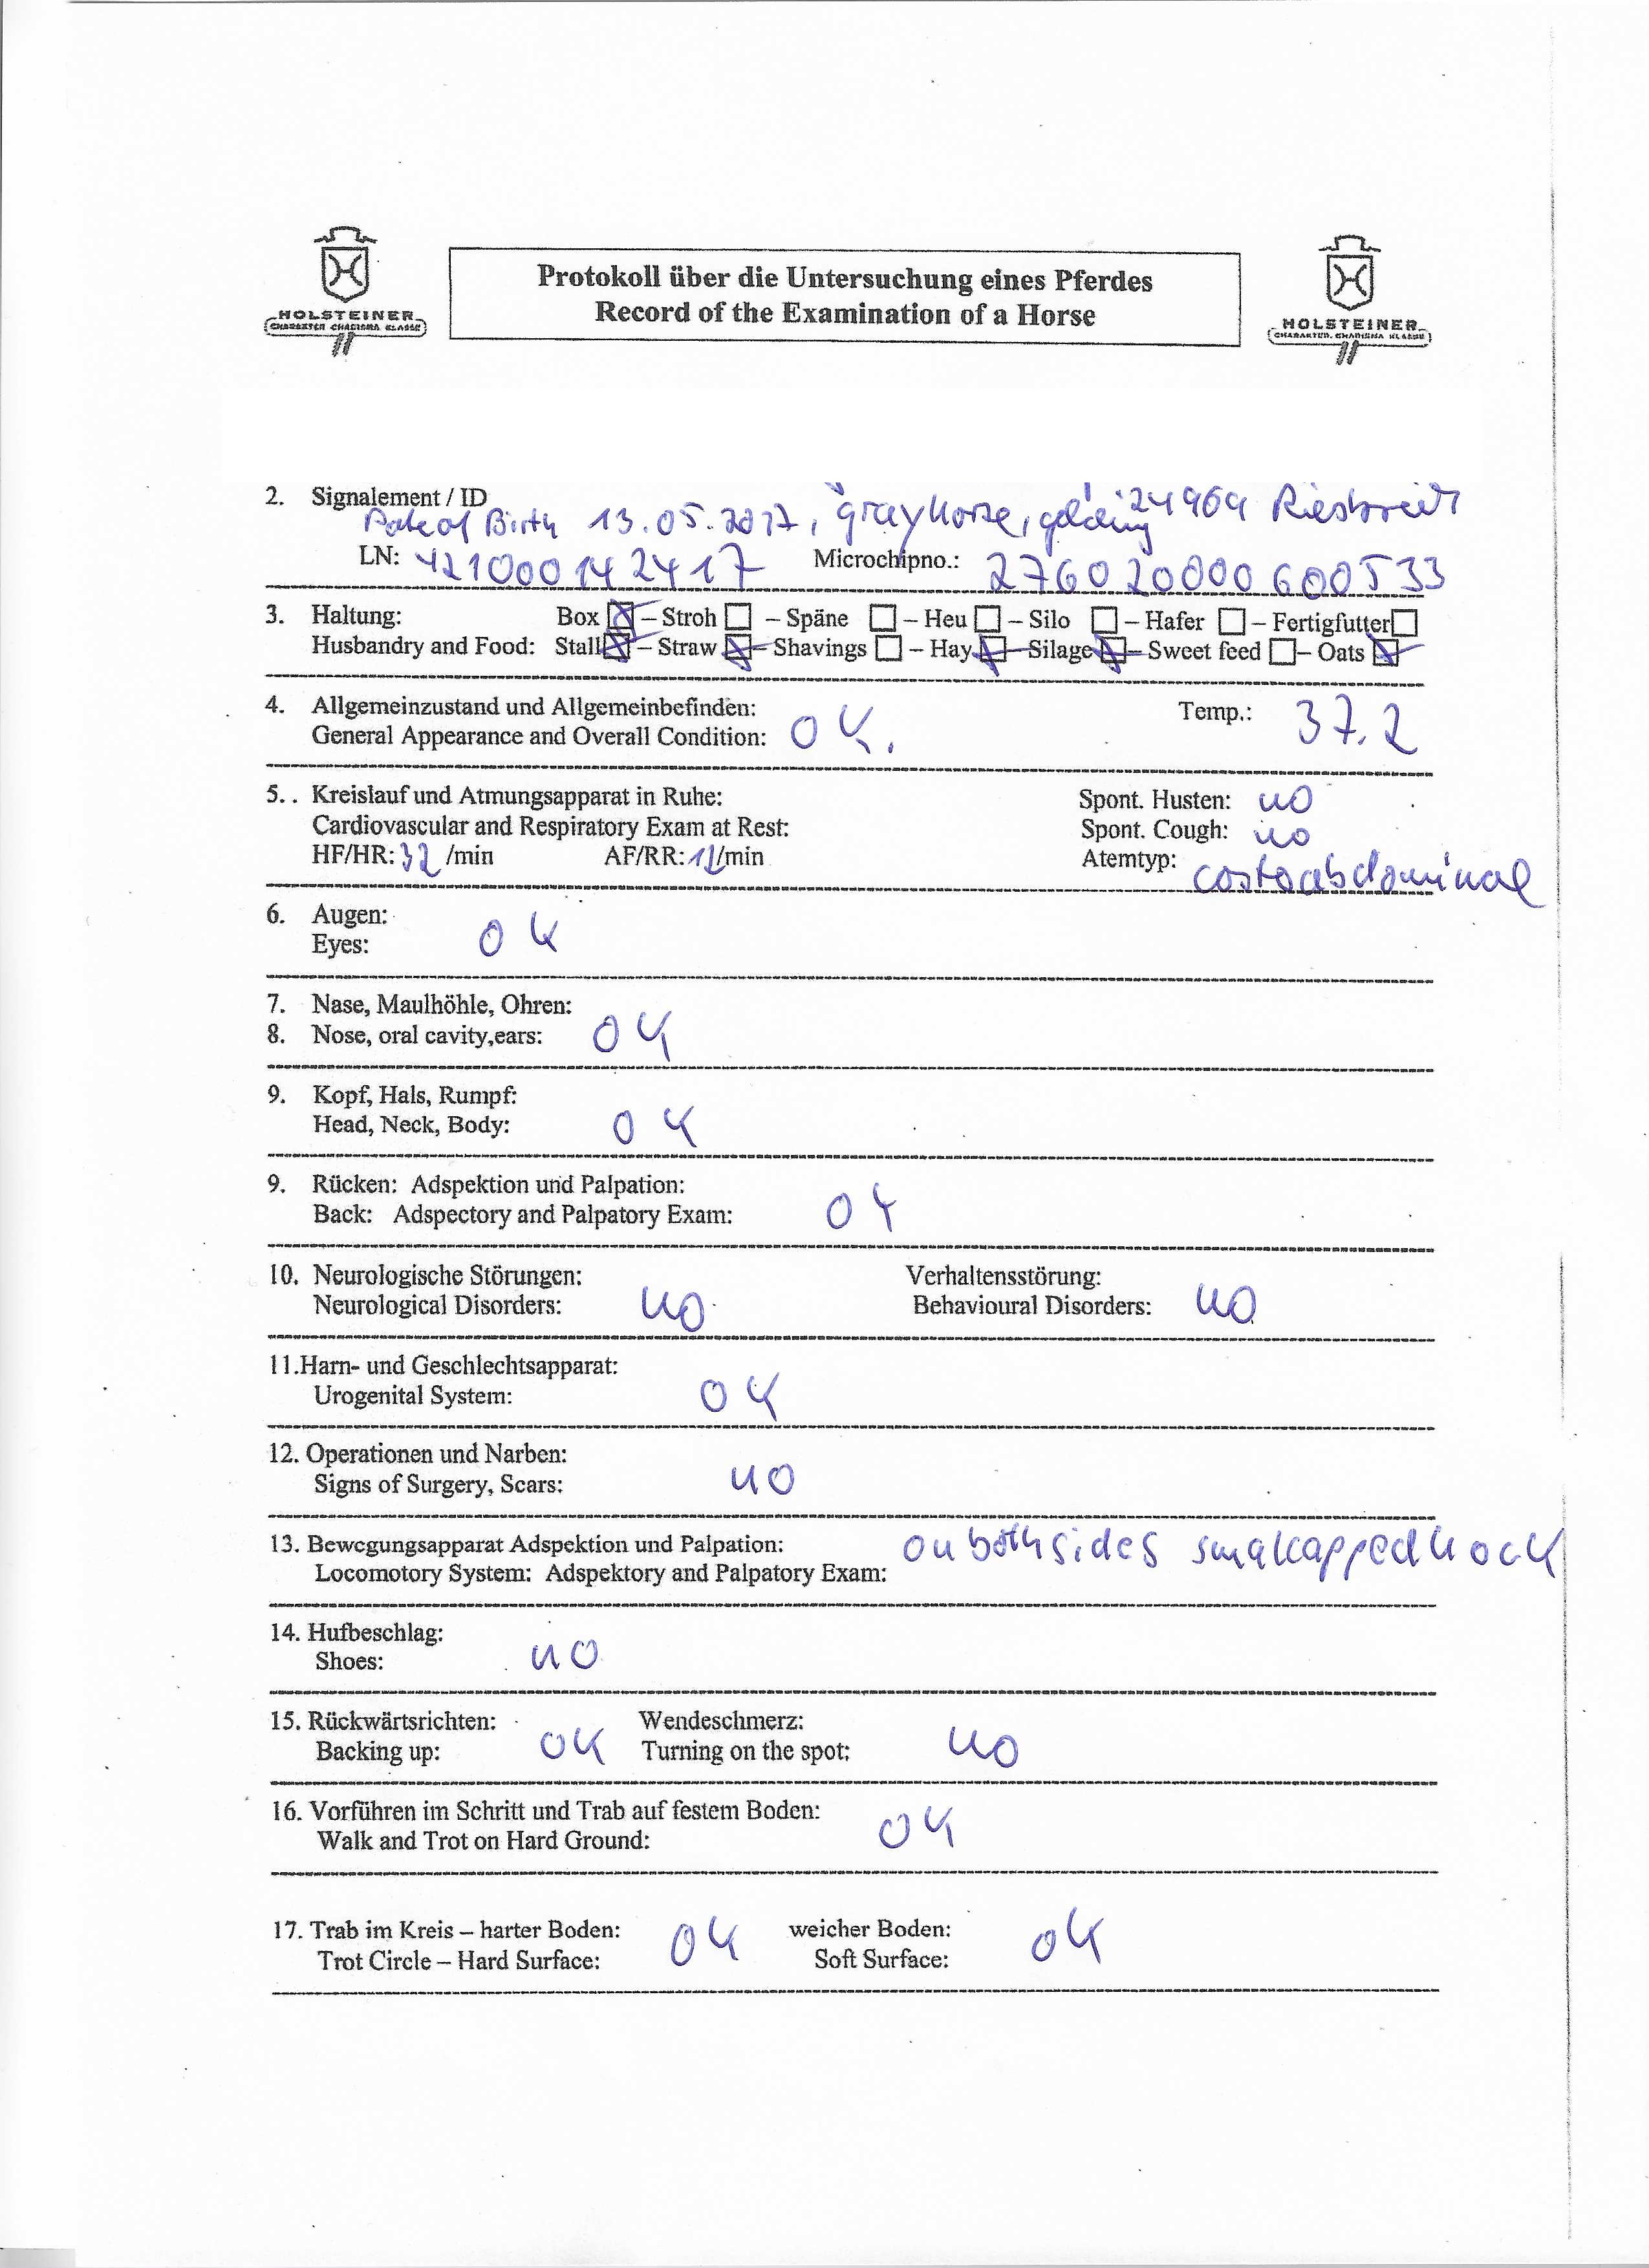 HOLSTEINER
CHARAKTER CHARISMA KLASSE
Protokoll über die Untersuchung eines Pferdes
Record of the Examination of a Horse
HOLSTEINER
CHARAKTER, CHARISMA KLASSE
2. Signalement / ID
Date of Birth 13.05.2017, gray horse, gelding 24969
LN: 421000142417 Microchipno.: 276020000600533
3. Haltung: Box ☒ – Stroh ☐ – Späne ☐ – Heu ☐ – Silo ☐ – Hafer ☐ – Fertigfutter ☐
Husbandry and Food: Stall ☒ – Straw ☒ – Shavings ☐ – Hay ☒ – Silage ☒ – Sweet feed ☐ – Oats ☒
4. Allgemeinzustand und Allgemeinbefinden: Temp.: 37.2
General Appearance and Overall Condition: OK.
5. . Kreislauf und Atmungsapparat in Ruhe: Spont. Husten: no
Cardiovascular and Respiratory Exam at Rest: Spont. Cough: no
HF/HR: 32 /min AF/RR: /min Atemtyp: costoabdominal
6. Augen:
Eyes: OK
7. Nase, Maulhöhle, Ohren:
8. Nose, oral cavity,ears: OK
9. Kopf, Hals, Rumpf:
Head, Neck, Body: OK
9. Rücken: Adspektion und Palpation:
Back: Adspectory and Palpatory Exam: OK
10. Neurologische Störungen: Verhaltensstörung:
Neurological Disorders: no Behavioural Disorders: no
11.Harn- und Geschlechtsapparat:
Urogenital System: OK
12. Operationen und Narben:
Signs of Surgery, Scars: no
13. Bewegungsapparat Adspektion und Palpation: on both sides smal capped hock
Locomotory System: Adspektory and Palpatory Exam:
14. Hufbeschlag:
Shoes: no
15. Rückwärtsrichten: Wendeschmerz:
Backing up: OK Turning on the spot: no
16. Vorführen im Schritt und Trab auf festem Boden:
Walk and Trot on Hard Ground: OK
17. Trab im Kreis – harter Boden: OK weicher Boden: OK
Trot Circle – Hard Surface: Soft Surface: